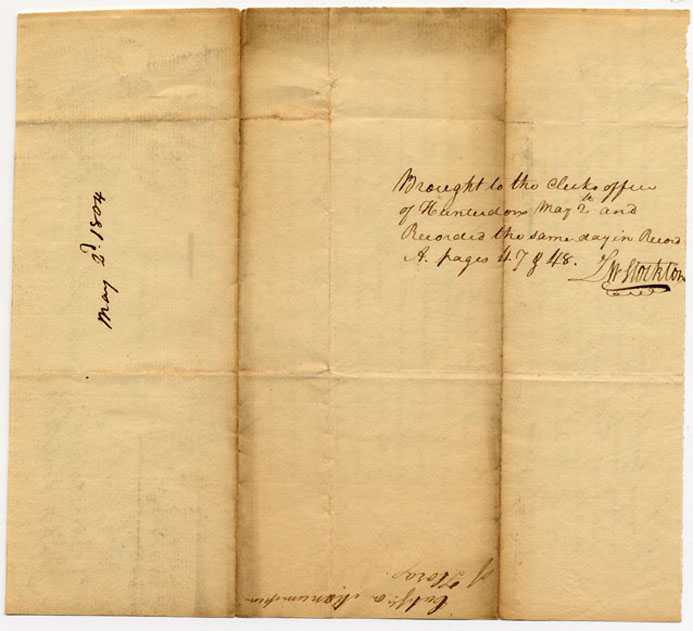 Brought to the Clerks office
of Hunterdon May 2th and
Recorded the same day in Record
A. pages 47 & 48.
Stockton
May 2d. 1804
manumission
of Flora